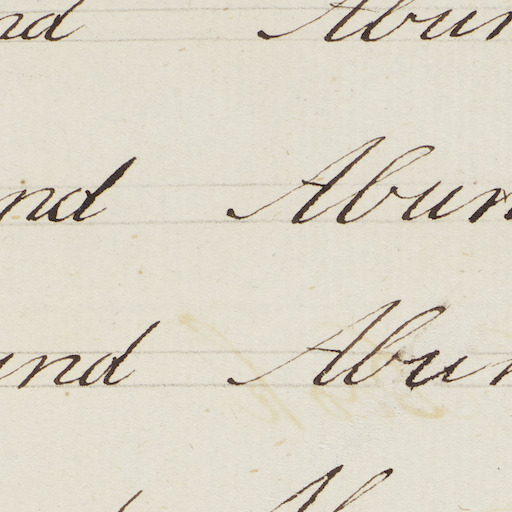 nd Abun
nd Abun
und Abun